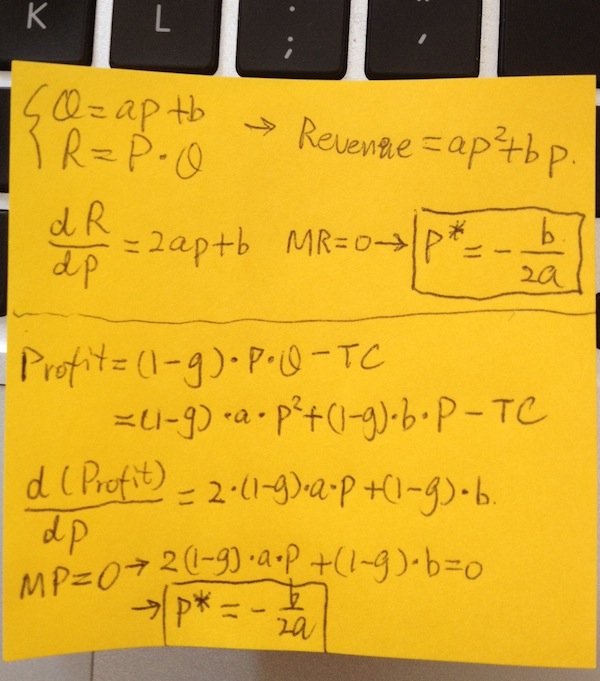 K L : ; " ,
{ Q = ap + b
R = P · Q → Revenue = ap² + bp.
dR/dp = 2ap + b MR = 0 → P* = - b/2a
Profit = (1-g) · P · Q - TC
= (1-g) · a · P² + (1-g) · b · P - TC
d(Profit)/dp = 2 · (1-g) · a · P + (1-g) · b.
MP = 0 → 2(1-g) · a · P + (1-g) · b = 0
→ P* = - b/2a